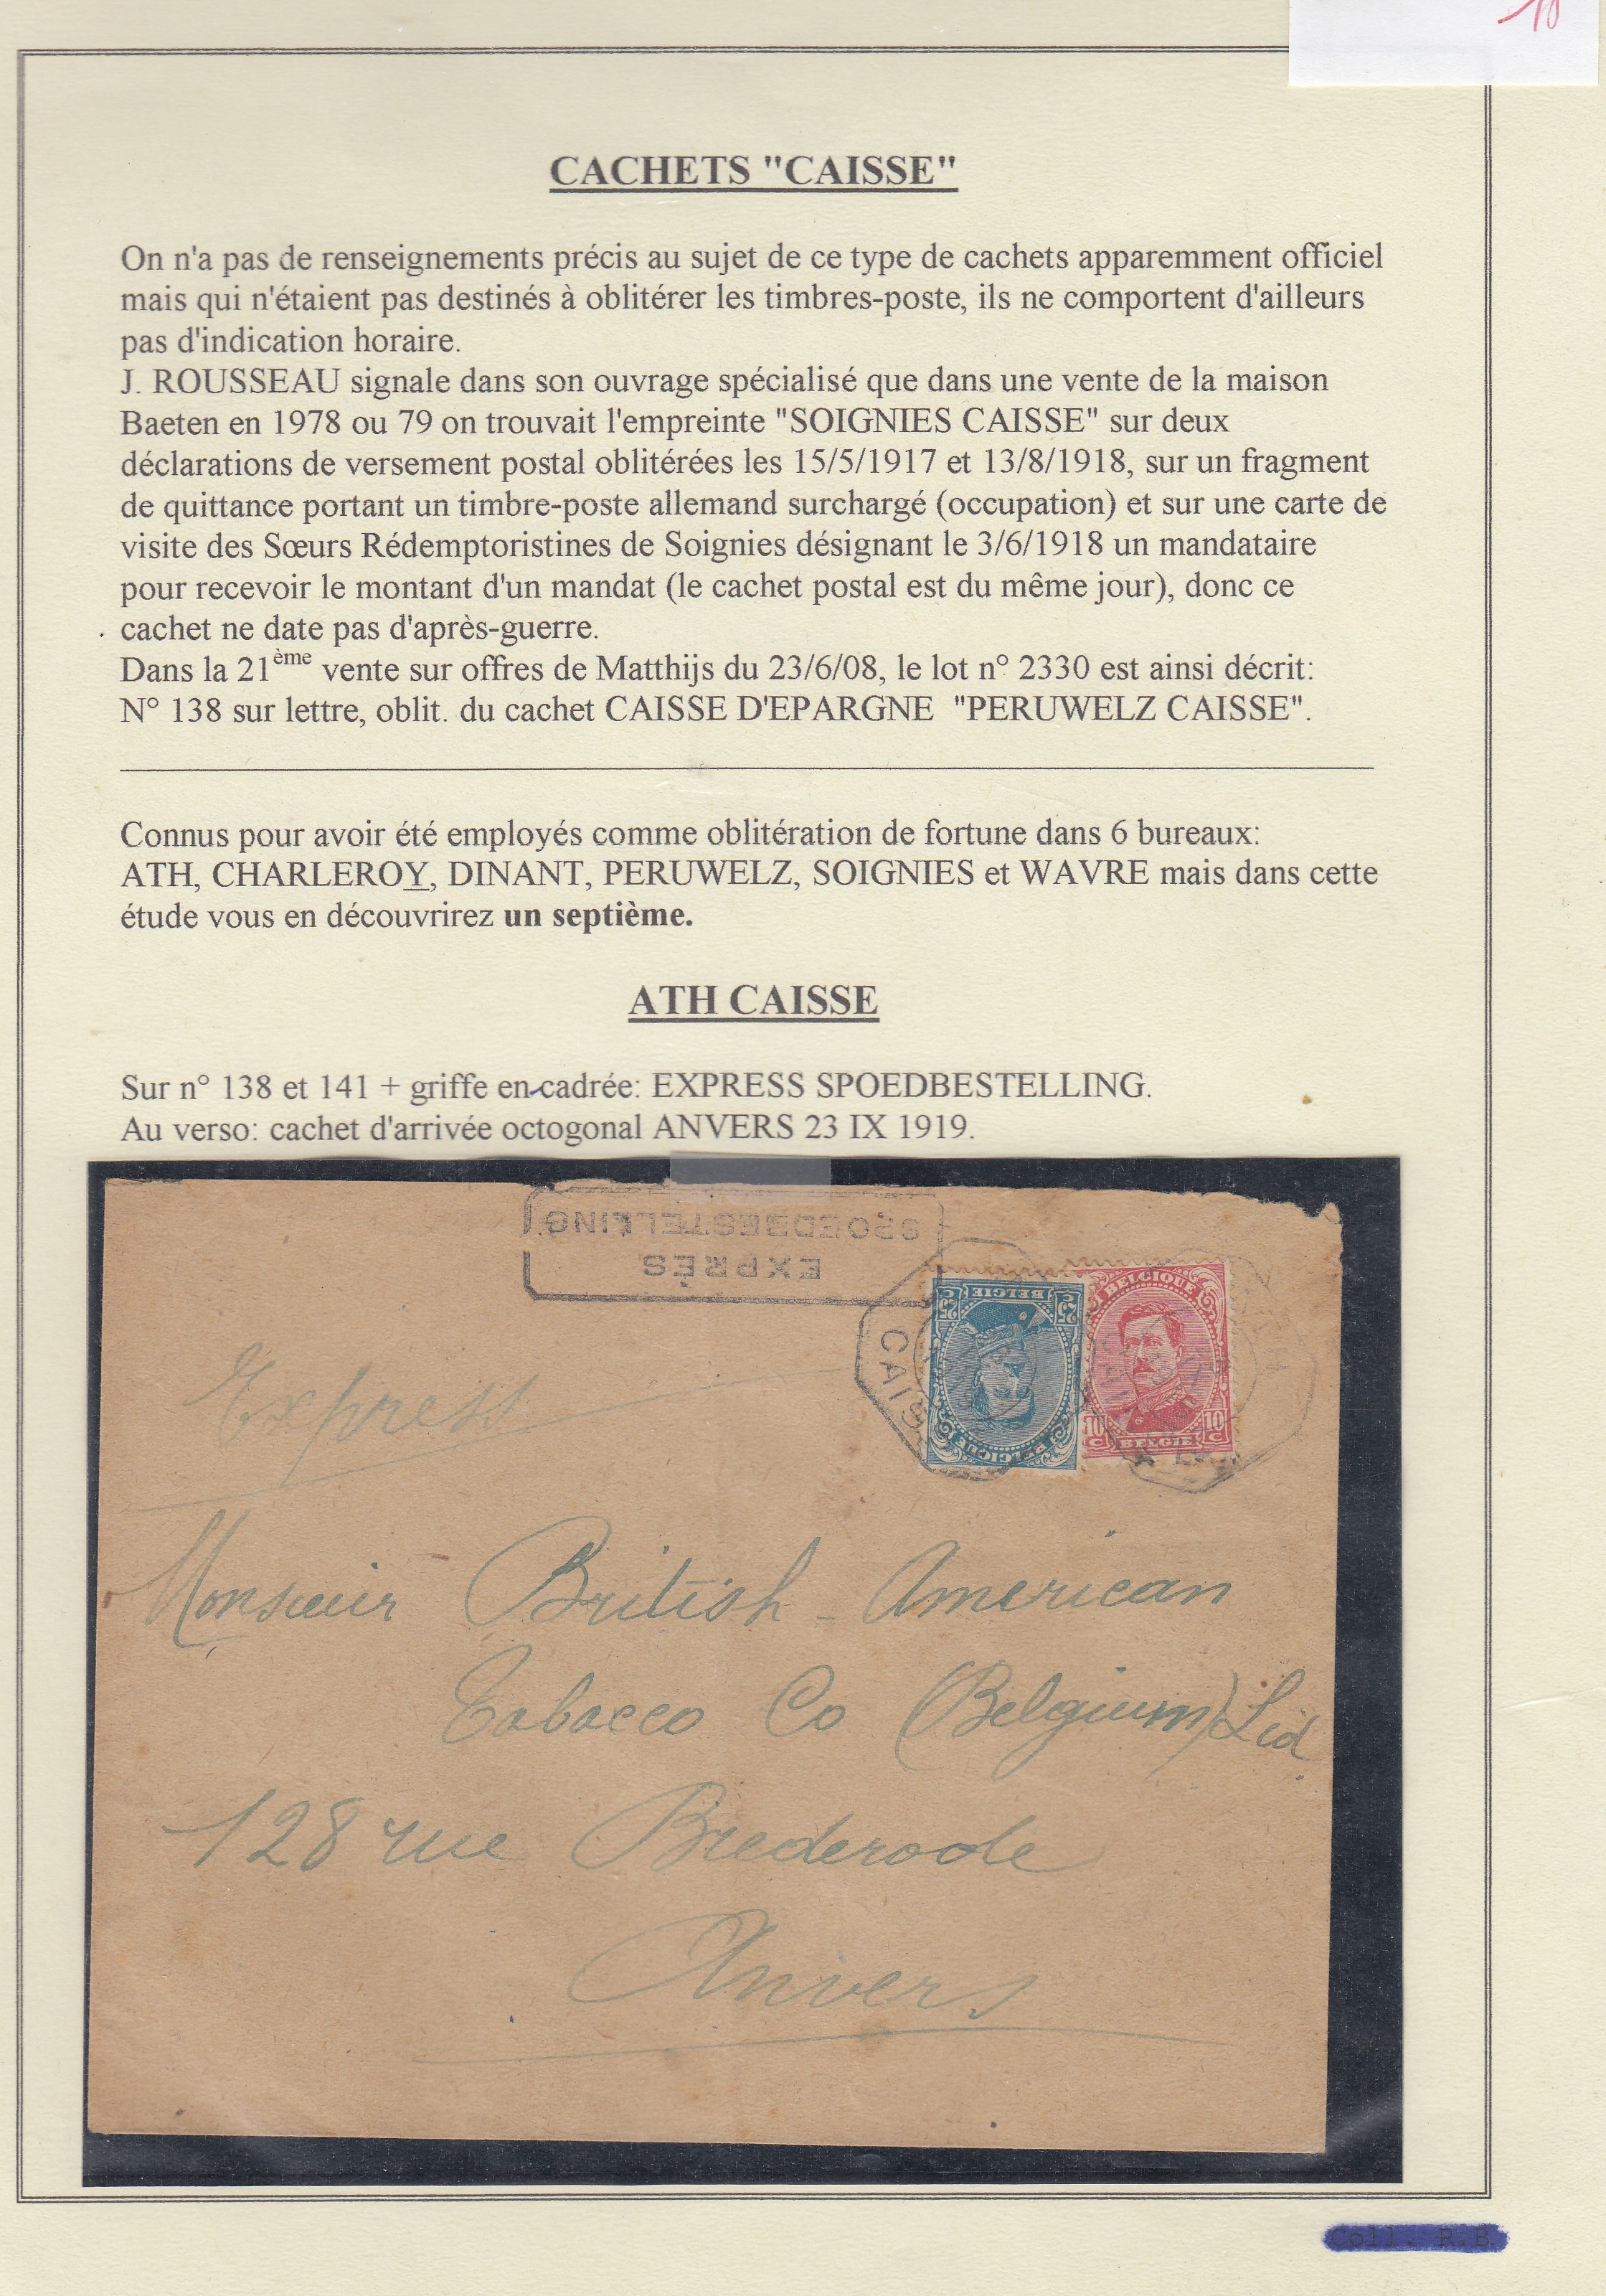 10
CACHETS "CAISSE"
On n'a pas de renseignements précis au sujet de ce type de cachets apparemment officiel
mais qui n'étaient pas destinés à oblitérer les timbres-poste, ils ne comportent d'ailleurs
pas d'indication horaire.
J. ROUSSEAU signale dans son ouvrage spécialisé que dans une vente de la maison
Baeten en 1978 ou 79 on trouvait l'empreinte "SOIGNIES CAISSE" sur deux
déclarations de versement postal oblitérées les 15/5/1917 et 13/8/1918, sur un fragment
de quittance portant un timbre-poste allemand surchargé (occupation) et sur une carte de
visite des Sœurs Rédemptoristines de Soignies désignant le 3/6/1918 un mandataire
pour recevoir le montant d'un mandat (le cachet postal est du même jour), donc ce
cachet ne date pas d'après-guerre.
Dans la 21ème vente sur offres de Matthijs du 23/6/08, le lot n° 2330 est ainsi décrit:
N° 138 sur lettre, oblit. du cachet CAISSE D'EPARGNE "PERUWELZ CAISSE".
Connus pour avoir été employés comme oblitération de fortune dans 6 bureaux:
ATH, CHARLEROY, DINANT, PERUWELZ, SOIGNIES et WAVRE mais dans cette
étude vous en découvrirez un septième.
ATH CAISSE
Sur n° 138 et 141 + griffe en-cadrée: EXPRESS SPOEDBESTELLING.
Au verso: cachet d'arrivée octogonal ANVERS 23 IX 1919.
EXPRÈS
SPOEDBESTELLING
BELGIQUE
10 C 10 C
BELGIE
BELGIE
25 C 25 C
BELGIQUE
CAIS
Express
Monsieur British - American
Tobacco Co (Belgium) Ltd
128 rue Brederode
Anvers
Coll. R.B.